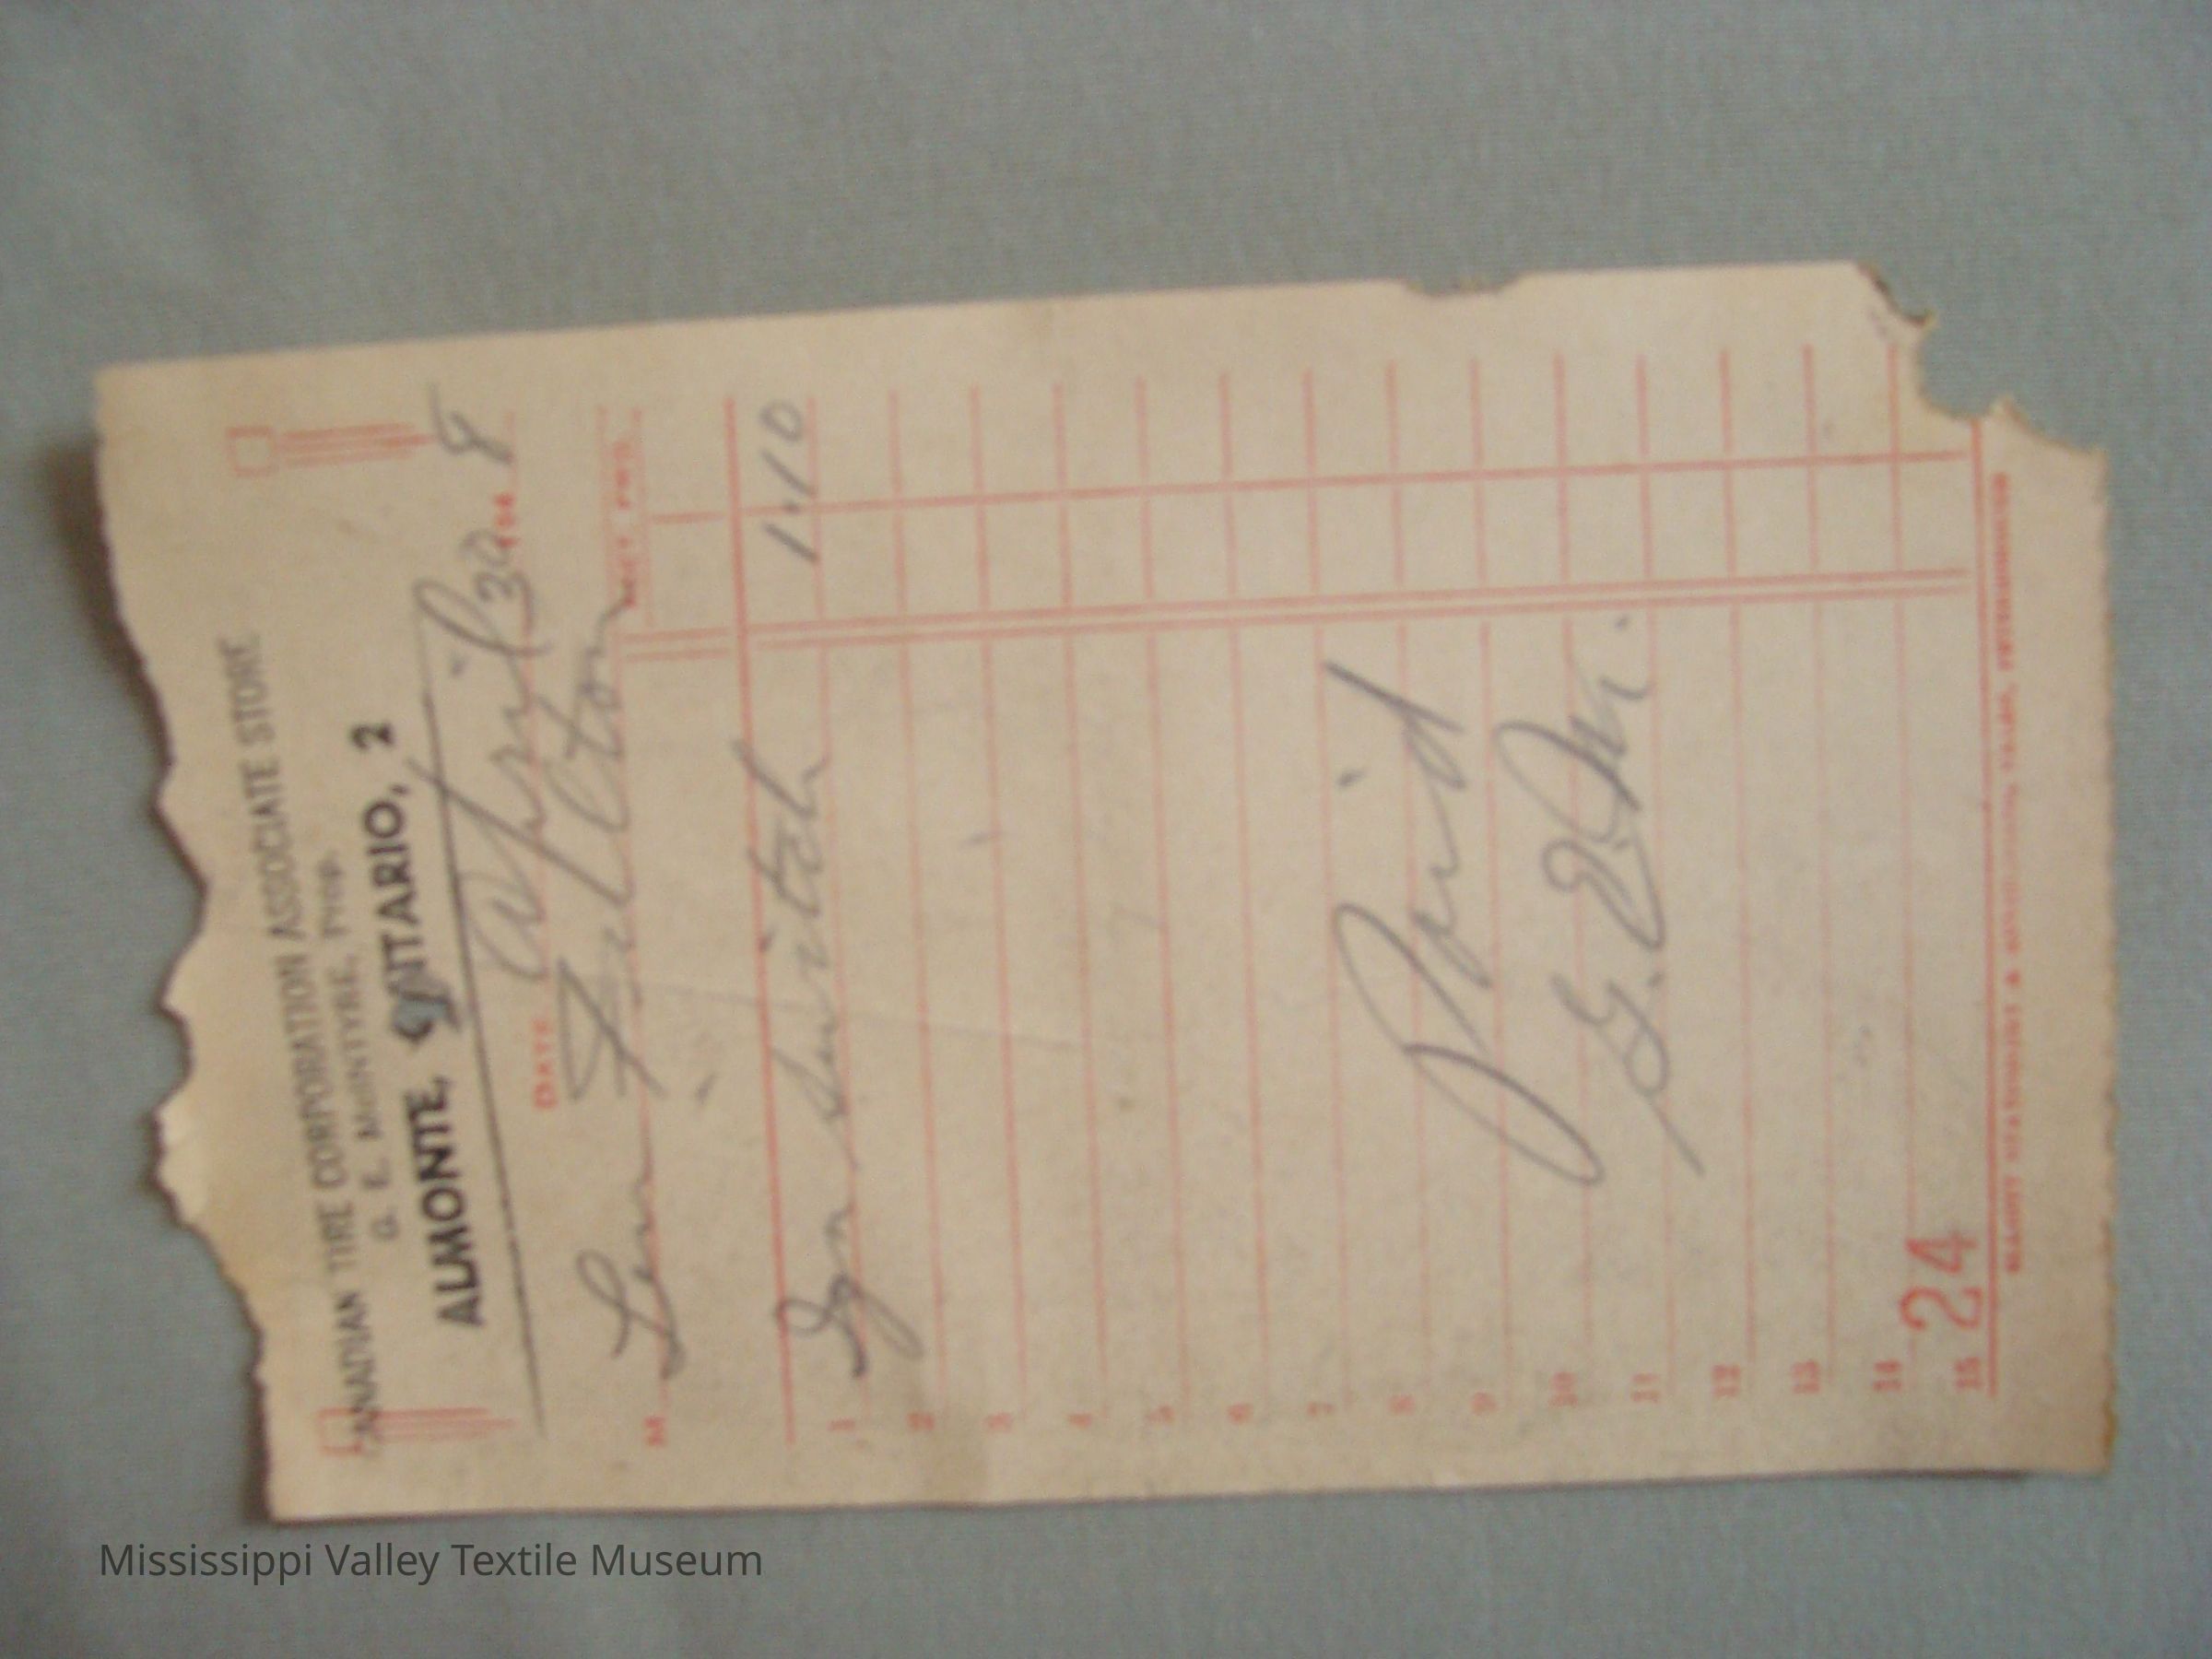 CANADIAN TIRE CORPORATION ASSOCIATE STORE
G. E. McINTYRE, Prop.
ALMONTE, ONTARIO, 2
DATE April 30 194 8
M Len Fulton
ACC'T FWD.
1 Ign Switch 1.10
2
3
4
5
6
7
8 Paid
9
10 G. E. Mc.
11
12
13
14
15 24
Mississippi Valley Textile Museum